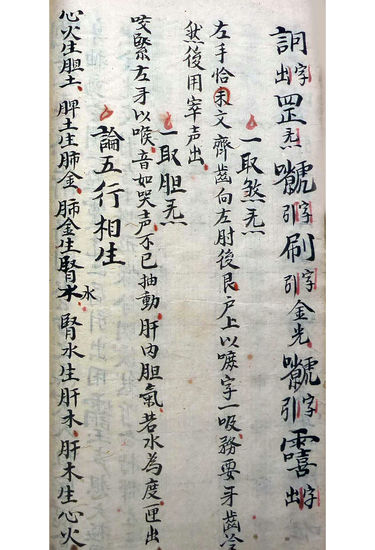 訶字出罡炁嚱字引刷字引金光嚱字引嚱字出
一取煞炁
左手恰未文齊齒向左肘後艮户上以嗽字一吸務要牙齒冷
然後用寧声出
一取胆炁
咬緊左牙以喉音如哭声不已抽動肝内胆氣若水為度匣出
論五行相生
心火生脾土脾土生肺金肺金生腎水腎水生肝木肝木生心火